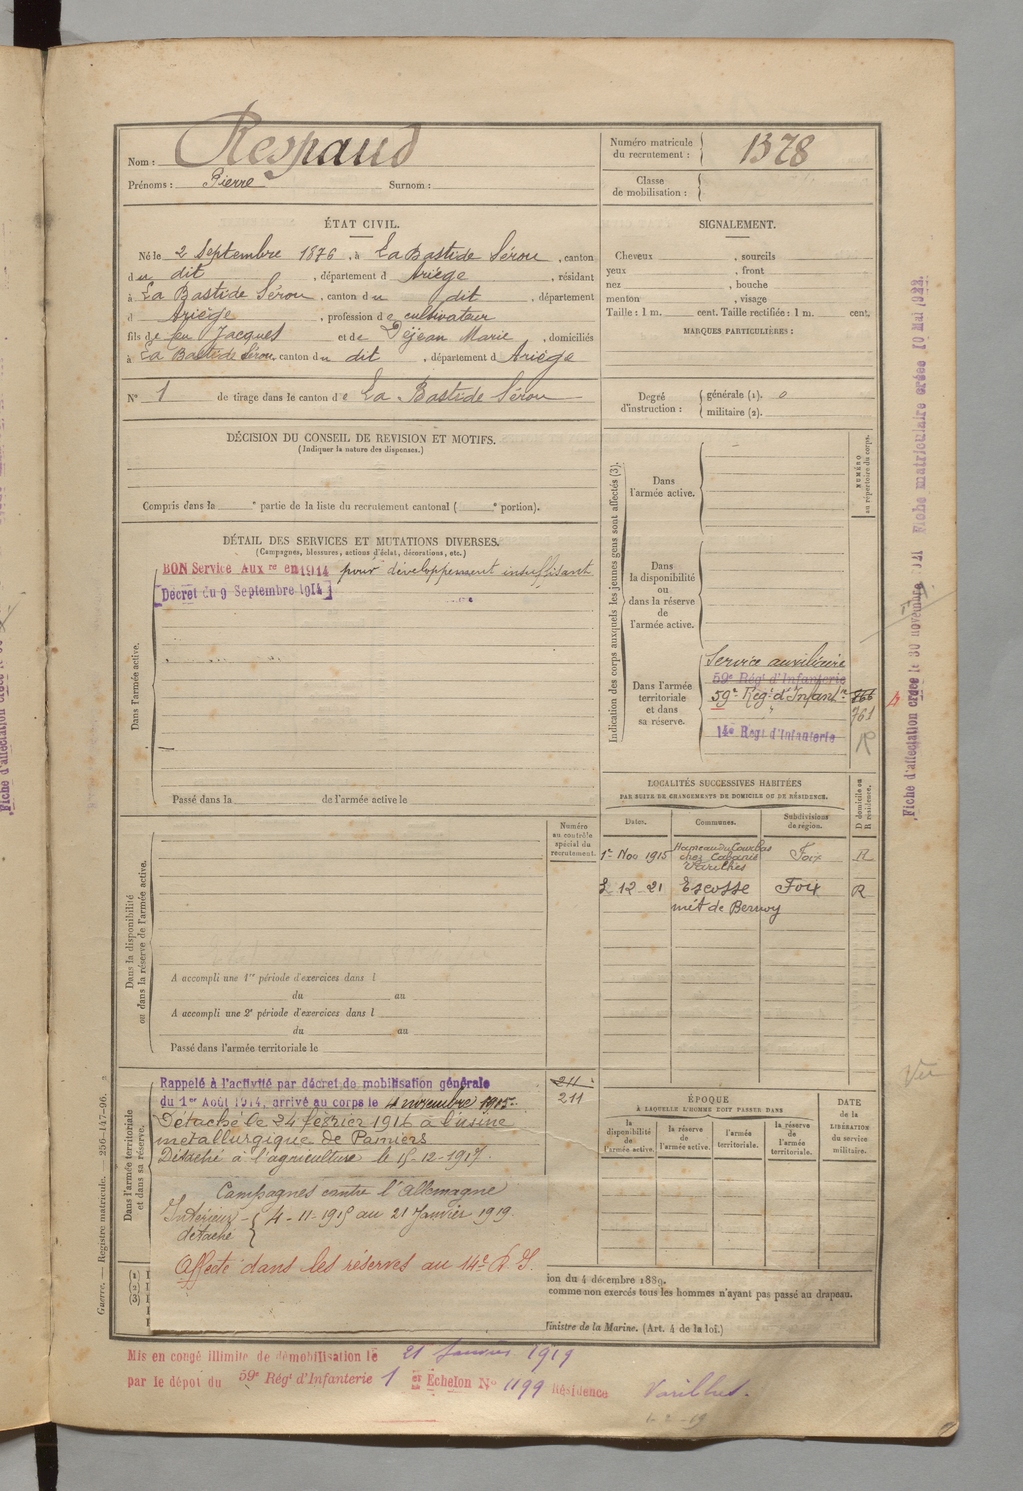 Nom : Respaud
Prénoms : Pierre Surnom :
Numéro matricule du recrutement : 1378
Classe de mobilisation :
ÉTAT CIVIL.
Né le 2 Septembre 1876, à La Bastide Sérou, canton
du dit, département d Ariège, résidant
à La Bastide Sérou, canton du dit, département
d Ariège, profession de cultivateur
fils de feu Jacques et de Dejean Marie, domiciliés
à La Bastide Sérou, canton du dit, département d Ariège
N° 1 de tirage dans le canton de La Bastide Sérou
SIGNALEMENT.
Cheveux , sourcils
yeux , front
nez , bouche
menton , visage
Taille : 1 m. cent. Taille rectifiée : 1 m. cent.
MARQUES PARTICULIÈRES :
Degré d'instruction : générale (1). 0
militaire (2).
DÉCISION DU CONSEIL DE REVISION ET MOTIFS.
(Indiquer la nature des dispenses.)
Compris dans la e partie de la liste du recrutement cantonal ( e portion).
DÉTAIL DES SERVICES ET MUTATIONS DIVERSES.
(Campagnes, blessures, actions d'éclat, décorations, etc.)
BON Service Aux re en 1914 pour développement insuffisant
Décret du 9 Septembre 1914
Dans l'armée active.
Passé dans la de l'armée active le
Indication des corps auxquels les jeunes gens sont affectés (3).
NUMÉRO au répertoire du corps.
Dans l'armée active.
Dans la disponibilité ou dans la réserve de l'armée active.
Dans l'armée territoriale et dans sa réserve.
Service auxiliaire
59e Régt d'Infanterie
59e Régt d'Infantie
761
14e Régt d'Infanterie
LOCALITÉS SUCCESSIVES HABITÉES
PAR SUITE DE CHANGEMENTS DE DOMICILE OU DE RÉSIDENCE.
Dates. Communes. Subdivisions de région. D domicile ou R résidence.
1er Nov 1915 Hameau du Courbas chez Cabanié Varilhes Foix R
2 12 21 Escosse Foix R
mét de Bernoy
Numéro au contrôle spécial du recrutement.
Dans la disponibilité ou dans la réserve de l'armée active.
A accompli une 1re période d'exercices dans l
du au
A accompli une 2e période d'exercices dans l
du au
Passé dans l'armée territoriale le
Dans l'armée territoriale et dans sa réserve.
Rappelé à l'activité par décret de mobilisation générale 211
du 1er Août 1914, arrivé au corps le 4 novembre 1915 211
Détaché le 24 février 1916 à l'usine
métallurgique de Pamiers
Détaché à l'agriculture le 15-12-1917.
Campagnes contre l'Allemagne
Intérieur détaché 4-11-1915 au 21 Janvier 1919.
Affecté dans les réserves au 14e R.I.
ÉPOQUE
À LAQUELLE L'HOMME DOIT PASSER DANS
la disponibilité de l'armée active. la réserve de l'armée active. l'armée territoriale. la réserve de l'armée territoriale.
DATE de la LIBÉRATION du service militaire.
(1)
(2)
(3)
ion du 4 décembre 1889.
comme non exercés tous les hommes n'ayant pas passé au drapeau.
Ministre de la Marine. (Art. 4 de la loi.)
Guerre. — Registre matricule. — 256-147-96.
Mis en congé illimité de démobilisation le 21 Janvier 1919
par le dépot du 59e Régt d'Infanterie 1 er Echelon N° 1199 Résidence Varilhes.
1-2-19
Vu
Fiche d'affection créée le 30 novembre 1921 Fiche matriculaire créée 10 Mai 1922.